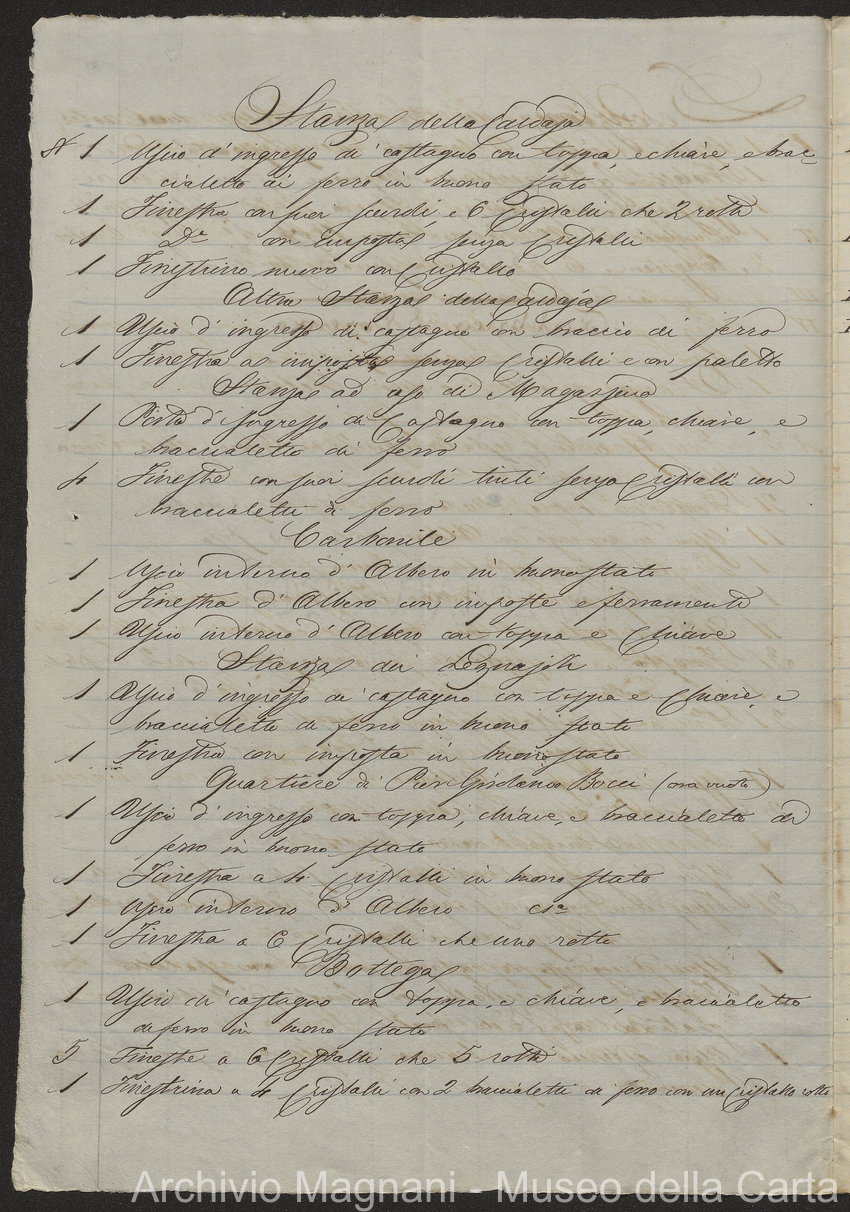 Stanza della Caldaja
N 1 Uscio d'ingresso di castagno con toppa, e chiave, e brac-
cialetto di ferro in buono stato
1 Finestra con suoi scurdi, e 6 Cristalli che 2 rotti
1 Da con imposta senza Cristalli
1 Finestrino nuovo con Cristallo
Altra Stanza della Caldaja
1 Uscio d'ingresso di castagno con braccio di ferro
1 Finestra a imposta senza Cristalli e con paletto
Stanza ad uso di Magazzino
1 Porta d'Ingresso di Castagno con toppa, chiave, e
braccialetto di ferro
4 Finestre con suoi scurdi tutti senza Cristalli con
braccialetti di ferro
Carbonile
1 Uscio interno d'Albero in buono stato
1 Finestra d'Albero con imposte e ferramenti
1 Uscio interno d'Albero con toppa e Chiave
Stanza dei Legnajoli
1 Uscio d'ingresso di castagno con toppa e Chiave, e
braccialetto di ferro in buono stato
1 Finestra con imposta in buono stato
Quartiere di Pier Giordano Bocci (ora vuoto)
1 Uscio d'ingresso con toppa, chiave, e braccialetto di
ferro in buono stato
1 Finestra a 4 Cristalli in buono stato
1 Uscio interno d'Albero
1 Finestra a 6 Cristalli che uno rotto
Bottega
1 Uscio di castagno con toppa, e chiave, e braccialetto
di ferro in buono stato
5 Finestre a 6 Cristalli che 5 rotti
1 Finestrina a 4 Cristalli con 2 braccialetti di ferro con un Cristallo rotto
Archivio Magnani - Museo della Carta